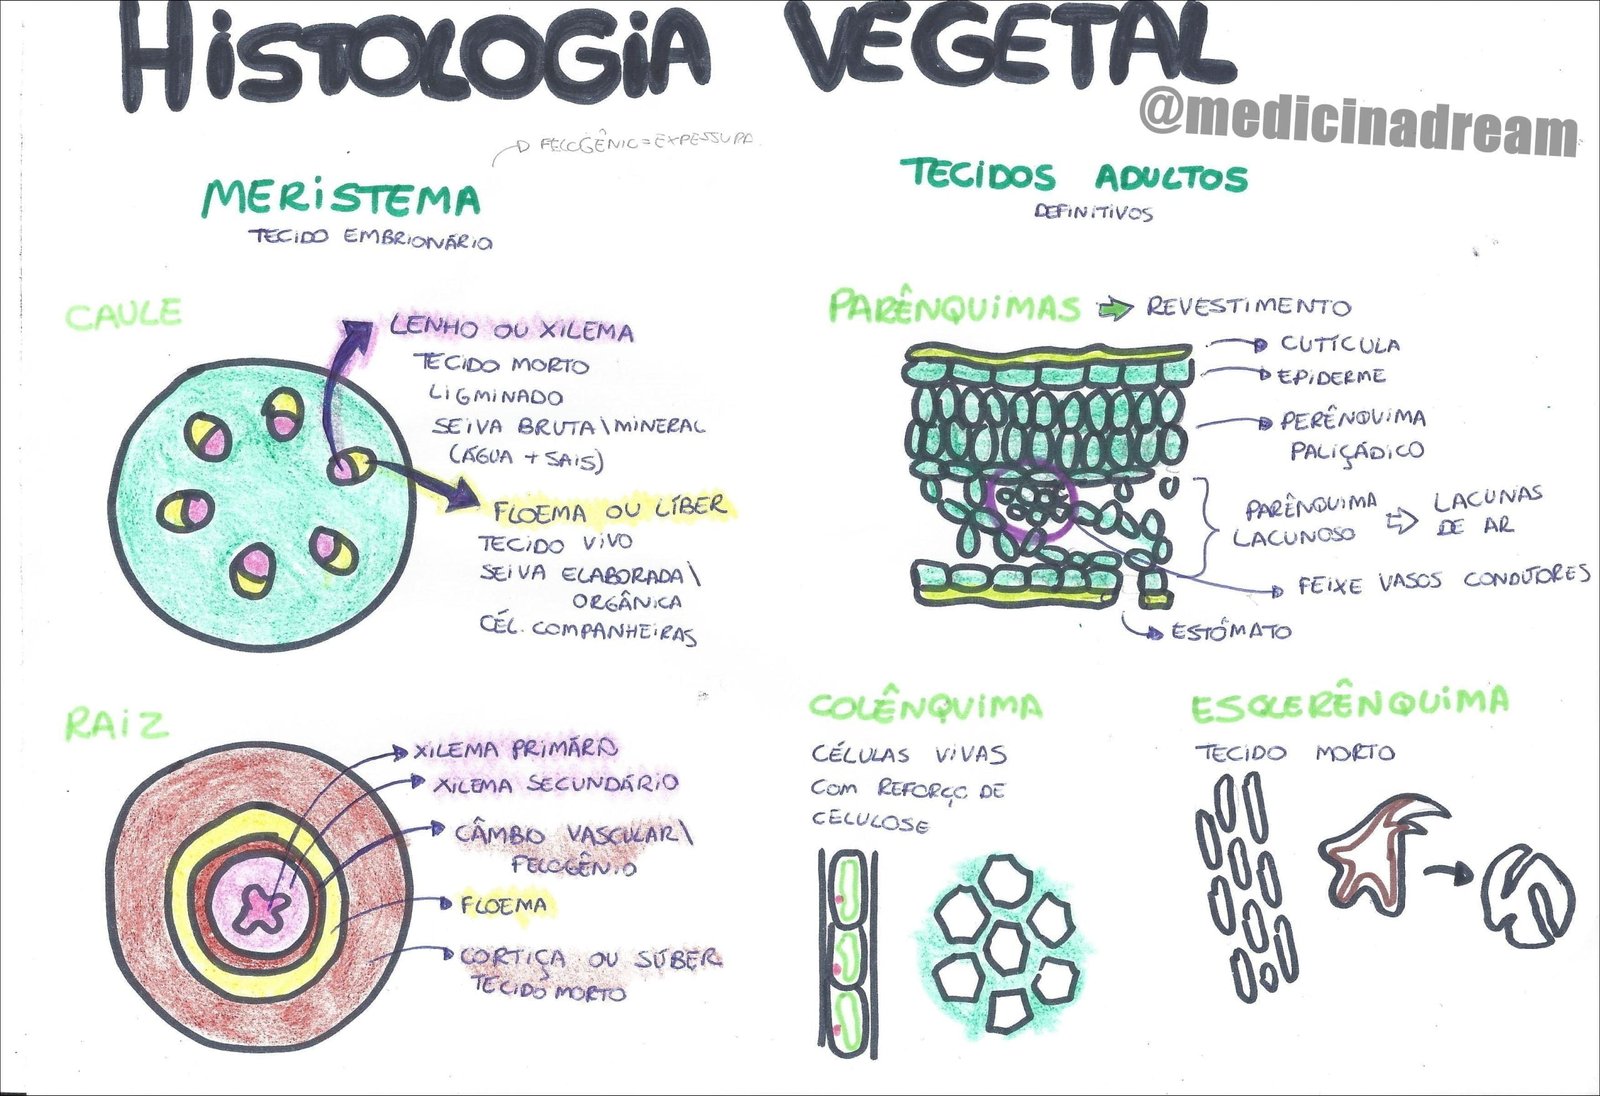 HISTOLOGIA VEGETAL
@medicinadream
FELOGÊNIO = EXPESSURA
MERISTEMA
TECIDO EMBRIONÁRIO
CAULE
LENHO OU XILEMA
TECIDO MORTO
LIGMINADO
SEIVA BRUTA\MINERAL
(ÁGUA + SAIS)
FLOEMA OU LÍBER
TECIDO VIVO
SEIVA ELABORADA\
ORGÂNICA
CÉL. COMPANHEIRAS
RAIZ
XILEMA PRIMÁRIO
XILEMA SECUNDÁRIO
CÂMBO VASCULAR\
FELOGÊNIO
FLOEMA
CORTIÇA OU SÚBER
TECIDO MORTO
TECIDOS ADULTOS
DEFINITIVOS
PARÊNQUIMAS
REVESTIMENTO
CUTÍCULA
EPIDERME
PERÊNQUIMA
PALIÇÁDICO
PARÊNQUIMA
LACUNOSO
LACUNAS
DE AR
FEIXE VASOS CONDUTORES
ESTÔMATO
COLÊNQUIMA
CÉLULAS VIVAS
COM REFORÇO DE
CELULOSE
ESCLERÊNQUIMA
TECIDO MORTO